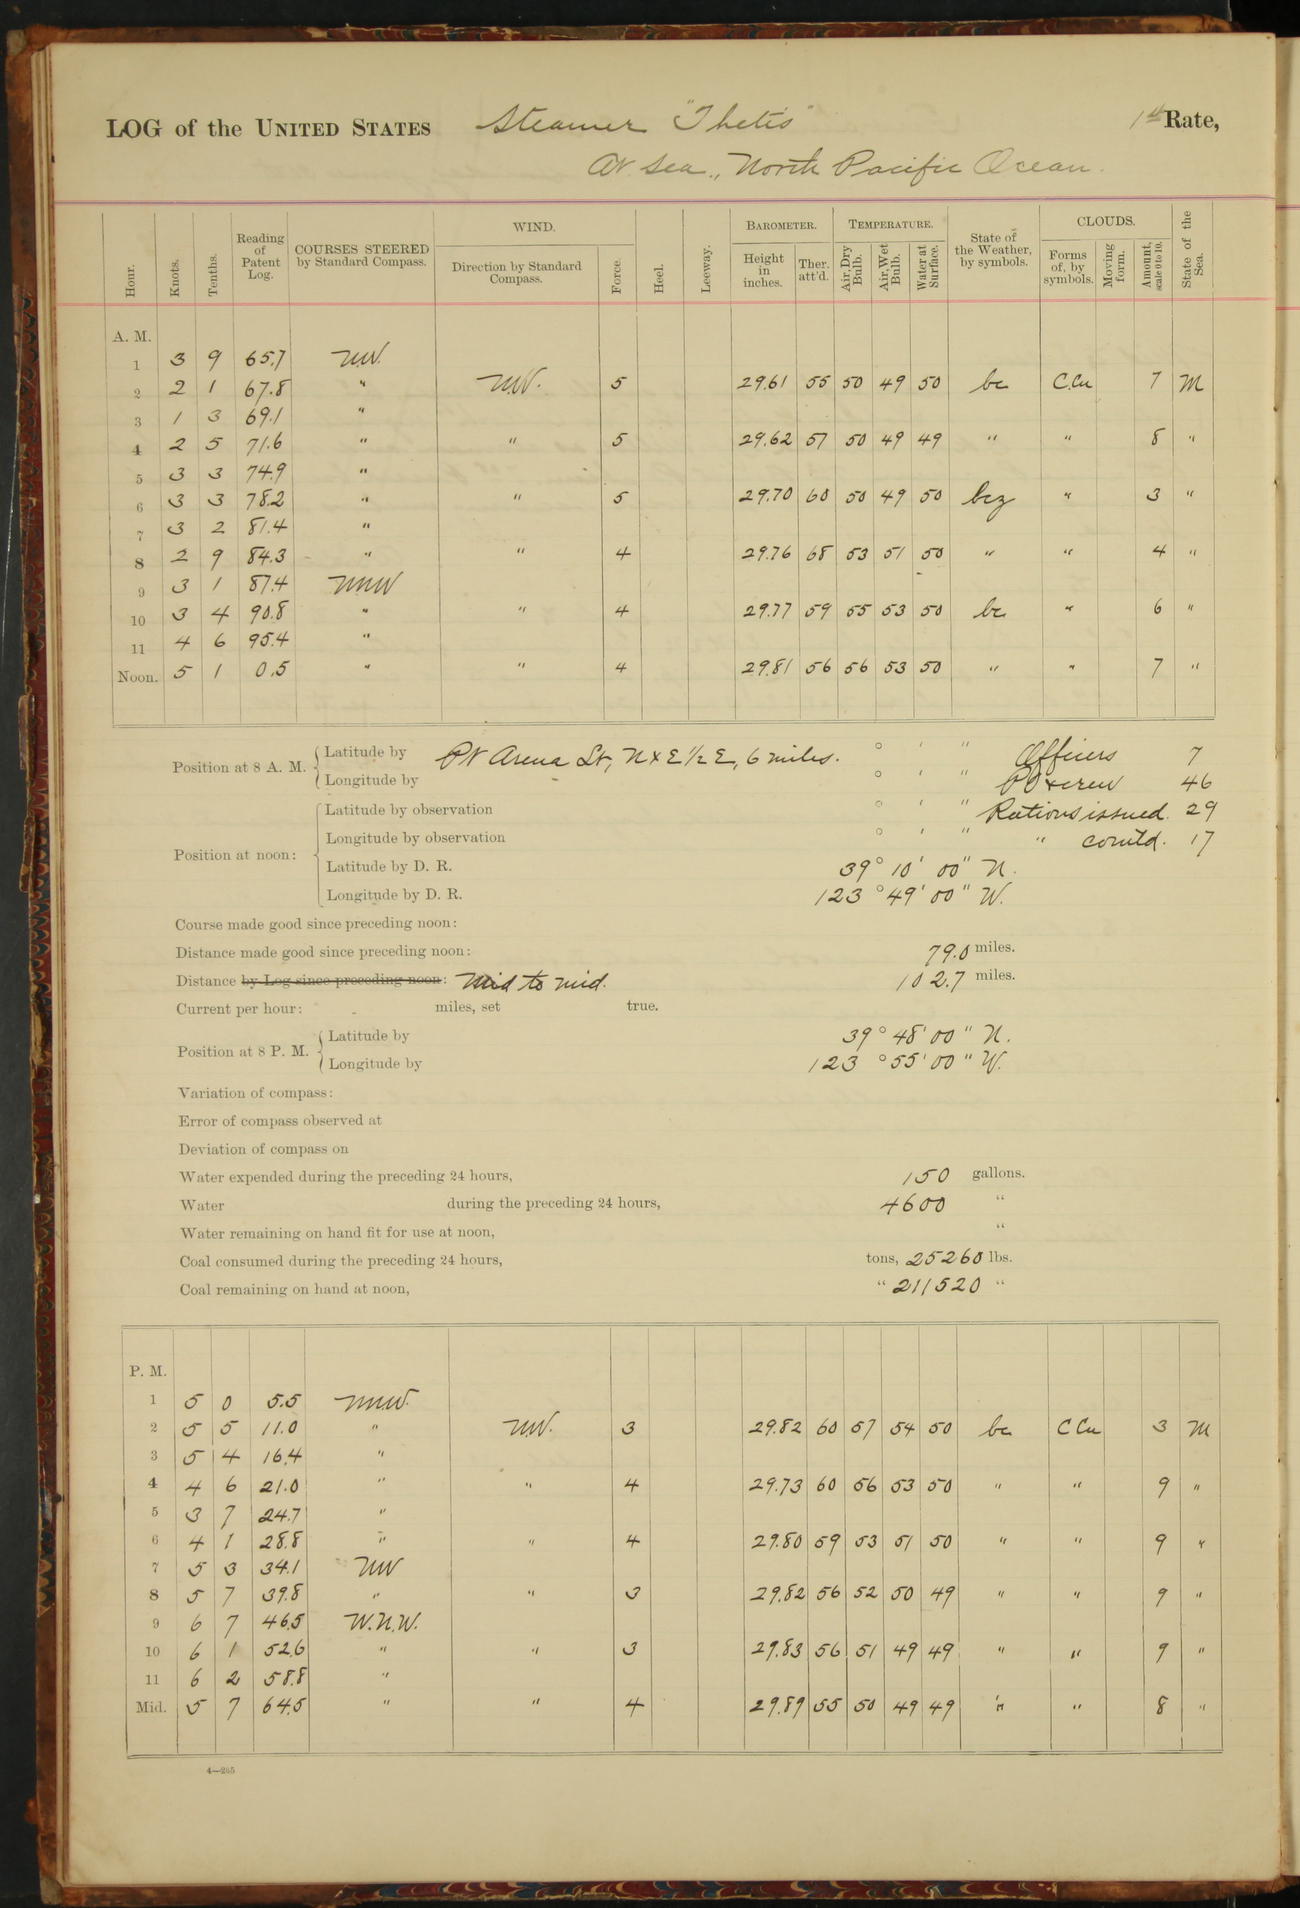 LOG of the UNITED STATES Steamer "Thetis" 1st Rate,
At Sea, North Pacific Ocean.
Hour. Knots. Tenths. Reading of Patent Log. COURSES STEERED by Standard Compass. WIND. Direction by Standard Compass. Force. Heel. Leeway. BAROMETER. Height in inches. Ther. att'd. TEMPERATURE. Air, Dry Bulb. Air, Wet Bulb. Water at Surface. State of the Weather, by symbols. CLOUDS. Forms of, by symbols. Moving form. Amount, scale 0 to 10. State of the Sea.
A. M.
1 3 9 65.7 NW.
2 2 1 67.8 " NW. 5 29.61 55 50 49 50 bc C.Cu 7 M
3 1 3 69.1 "
4 2 5 71.6 " " 5 29.62 57 50 49 49 " " 8 "
5 3 3 74.9 "
6 3 3 78.2 " " 5 29.70 60 50 49 50 bcz " 3 "
7 3 2 81.4 "
8 2 9 84.3 " " 4 29.76 68 53 51 50 " " 4 "
9 3 1 87.4 NNW
10 3 4 90.8 " " 4 29.77 59 55 53 50 bc " 6 "
11 4 6 95.4 "
Noon. 5 1 0.5 " " 4 29.81 56 56 53 50 " " 7 "
Position at 8 A. M. Latitude by Pt Arena Lt, N x E 1/2 E, 6 miles. ° ' " Officers 7
Longitude by ° ' " PO & crew 46
Position at noon: Latitude by observation ° ' " Rations issued. 29
Longitude by observation ° ' " " comtd. 17
Latitude by D. R. 39° 10' 00" N.
Longitude by D. R. 123° 49' 00" W.
Course made good since preceding noon:
Distance made good since preceding noon: 79.0 miles.
Distance by Log since preceding noon: Mid to mid. 102.7 miles.
Current per hour: miles, set true.
Position at 8 P. M. Latitude by 39° 48' 00" N.
Longitude by 123° 55' 00" W.
Variation of compass:
Error of compass observed at
Deviation of compass on
Water expended during the preceding 24 hours, 150 gallons.
Water during the preceding 24 hours, 4600 "
Water remaining on hand fit for use at noon, "
Coal consumed during the preceding 24 hours, tons, 25260 lbs.
Coal remaining on hand at noon, " 211520 "
P. M.
1 5 0 5.5 NNW.
2 5 5 11.0 " NW. 3 29.82 60 57 54 50 bc C Cu 3 M
3 5 4 16.4 "
4 4 6 21.0 " " 4 29.73 60 56 53 50 " " 9 "
5 3 7 24.7 "
6 4 1 28.8 " " 4 29.80 59 53 51 50 " " 9 "
7 5 3 34.1 NW
8 5 7 39.8 " " 3 29.82 56 52 50 49 " " 9 "
9 6 7 46.5 W.N.W.
10 6 1 52.6 " " 3 29.83 56 51 49 49 " " 9 "
11 6 2 58.8 "
Mid. 5 7 64.5 " " 4 29.89 55 50 49 49 " " 8 "
4—265